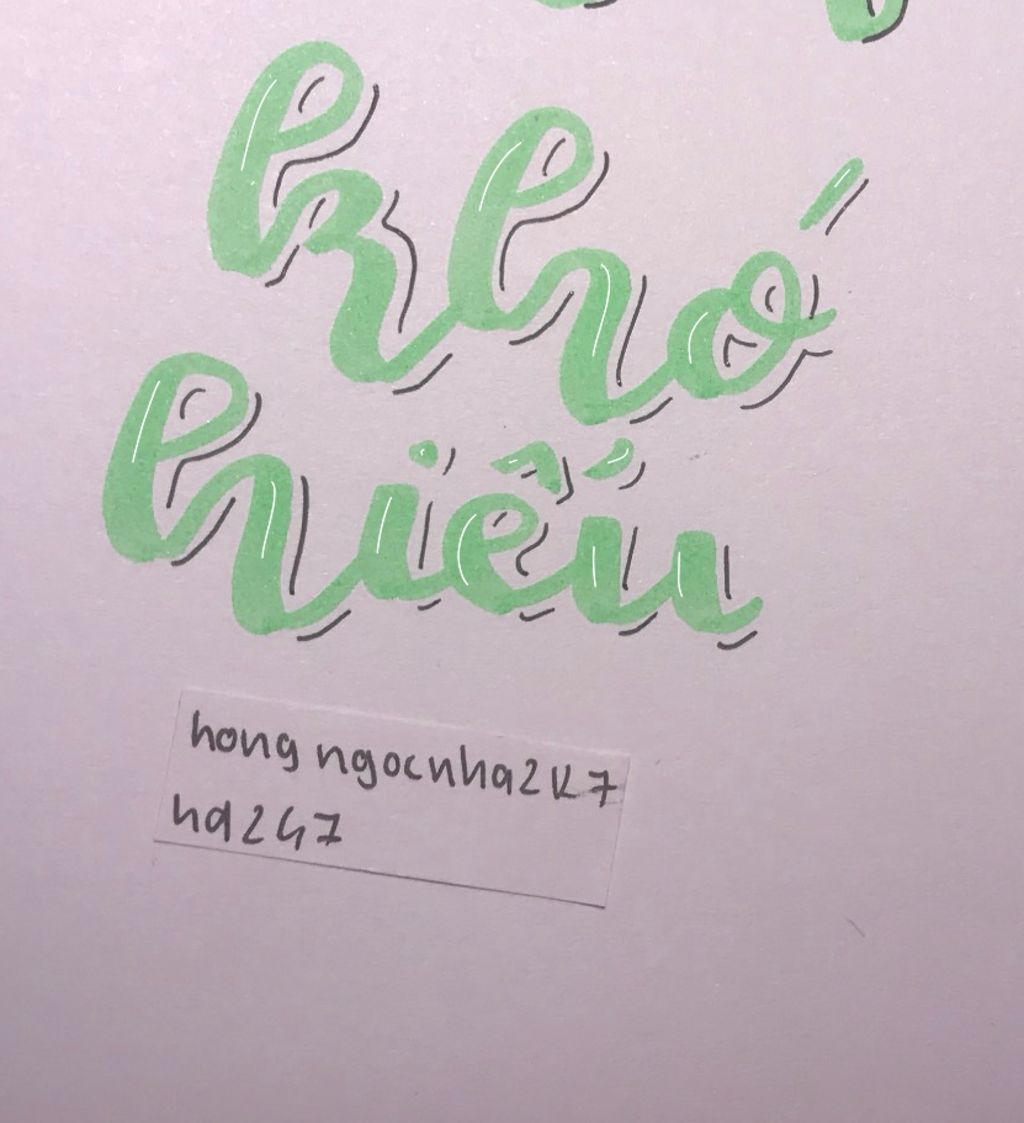 khó
hiếu
hong ngocnha2k7
ha247